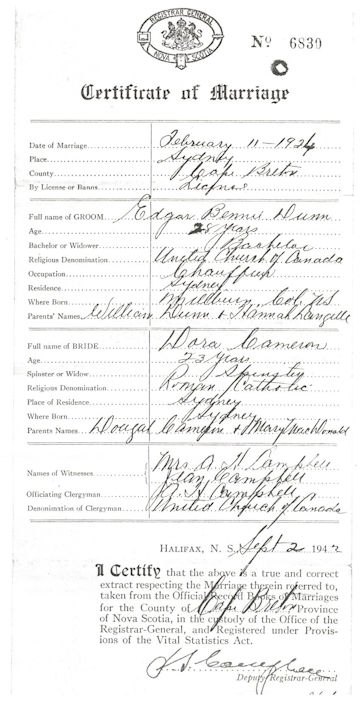 REGISTRAR GENERAL
NOVA SCOTIA
No 6830
Certificate of Marriage
Date of Marriage February 11-1924
Place Sydney
County Cape Breton
By License or Banns License
Full name of GROOM Edgar Bennie Dunn
Age 28 Years
Bachelor or Widower Bachelor
Religious Denomination United Church of Canada
Occupation Chauffeur
Residence Sydney
Where Born Millburn, Col. NS
Parents' Names William Dunn & Hannah Langille
Full name of BRIDE Dora Cameron
Age 23 Years
Spinster or Widow Spinster
Religious Denomination Roman Catholic
Place of Residence Sydney
Where Born Sydney
Parents Names Dougal Cameron & Mary MacDonald
Names of Witnesses Mrs A. H. Campbell
Jean Campbell
Officiating Clergyman A. H. Campbell
Denomination of Clergyman United Church of Canada
HALIFAX, N. S. Sept 2 1942
I Certify that the above is a true and correct
extract respecting the Marriage therein referred to,
taken from the Official Record Books of Marriages
for the County of Cape Breton Province
of Nova Scotia, in the custody of the Office of the
Registrar-General, and Registered under Provis-
ions of the Vital Statistics Act.
Deputy Registrar-General